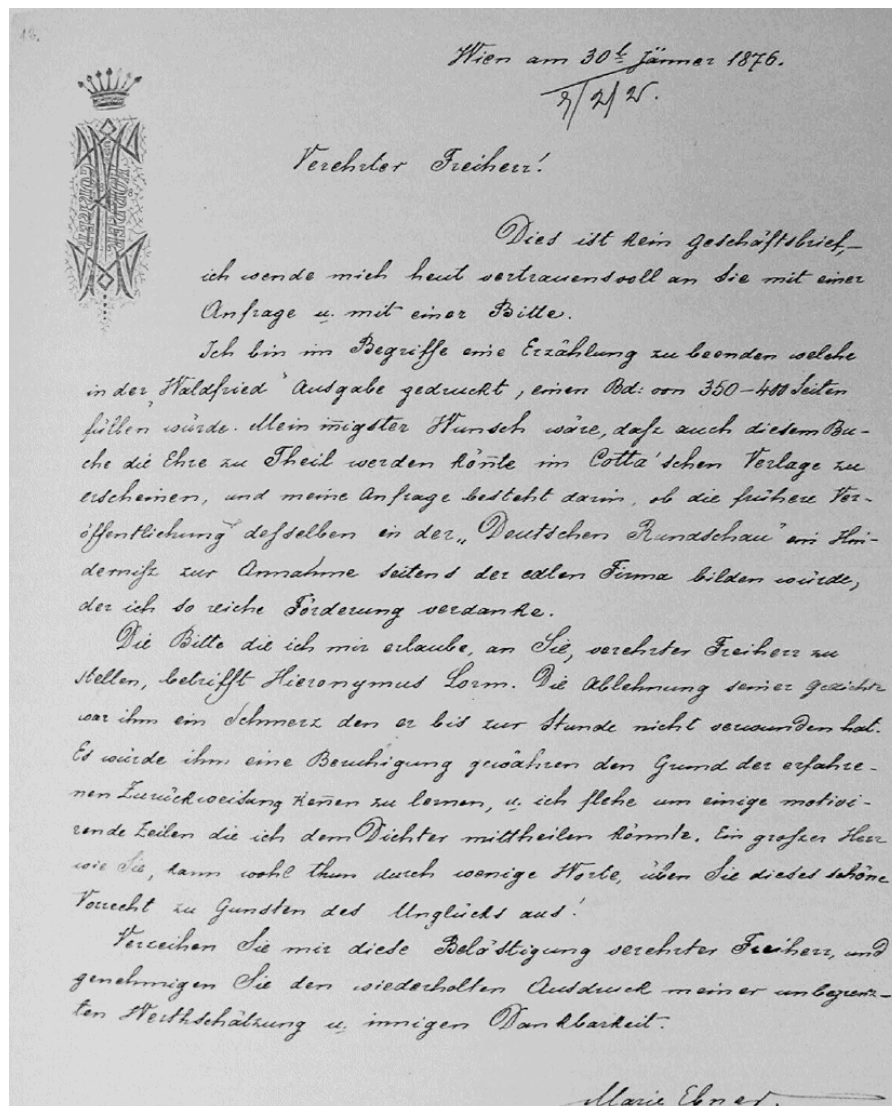 18.
Wien am 30t Jänner 1876.
2/2
Verehrter Freiherr!
Dies ist kein Geschäftsbrief,–
ich wende mich heut vertrauensvoll an Sie mit einer
Anfrage u. mit einer Bitte.
Ich bin im Begriffe eine Erzählung zu beenden welche
in der „Waldfried" Ausgabe gedruckt, einen Bd: von 350–400 Seiten
füllen würde. Mein iñigster Wunsch wäre, dafz auch diesem Bu-
che die Ehre zu Theil werden köñte im Cotta'schen Verlage zu
erscheinen, und meine Anfrage besteht darin, ob die frühere Ver-
öffentlichung defselben in der „Deutschen Rundschau" ein Hin-
dernifz zur Annahme seitens der edlen Firma bilden würde,
der ich so reiche Förderung verdanke.
Die Bitte die ich mir erlaube, an Sie, verehrter Freiherr zu
stellen, betrifft Hieronymus Lorm. Die Ablehnung seiner Gedichte
war ihm ein Schmerz den er bis zur Stunde nicht verwunden hat.
Es würde ihm eine Beruhigung gewähren den Grund der erfahre-
nen Zurückweisung keñen zu lernen, u. ich flehe um einige motivi-
rende Zeilen die ich dem Dichter mittheilen könnte. Ein grofzer Herr
wie Sie, kann wohl thun durch wenige Worte, üben Sie dieses schöne
Vorrecht zu Gunsten des Unglücks aus!
Verzeihen Sie mir diese Belästigung verehrter Freiherr, und
genehmigen Sie den wiederholten Ausdruck meiner unbegrenz-
ten Werthschätzung u. innigen Dankbarkeit.
Marie Ebner.